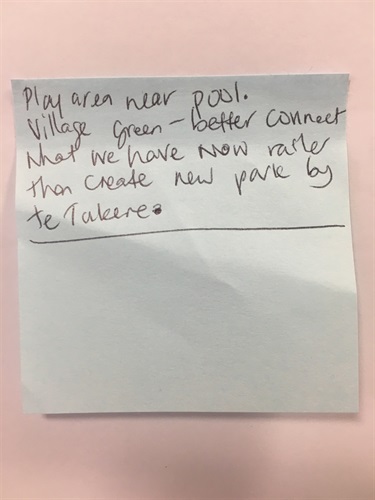 Play area near pool.
Village Green - better connect
what we have now rather
than create new park by
te Takere.